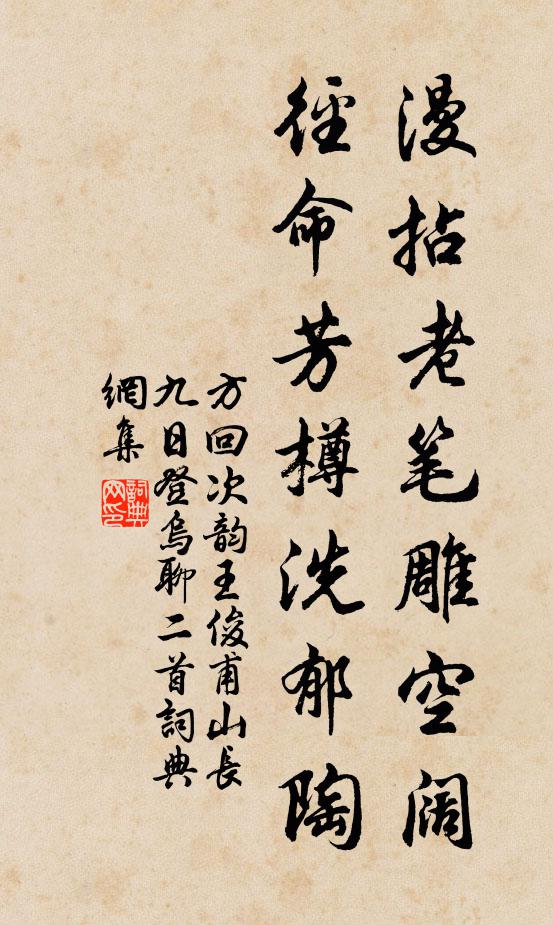 漫拈老笔雕空阔
径命芳樽洗郁陶
方回次韵王俊甫山長
九日登烏聊二首詞典
網集
詞典
网印